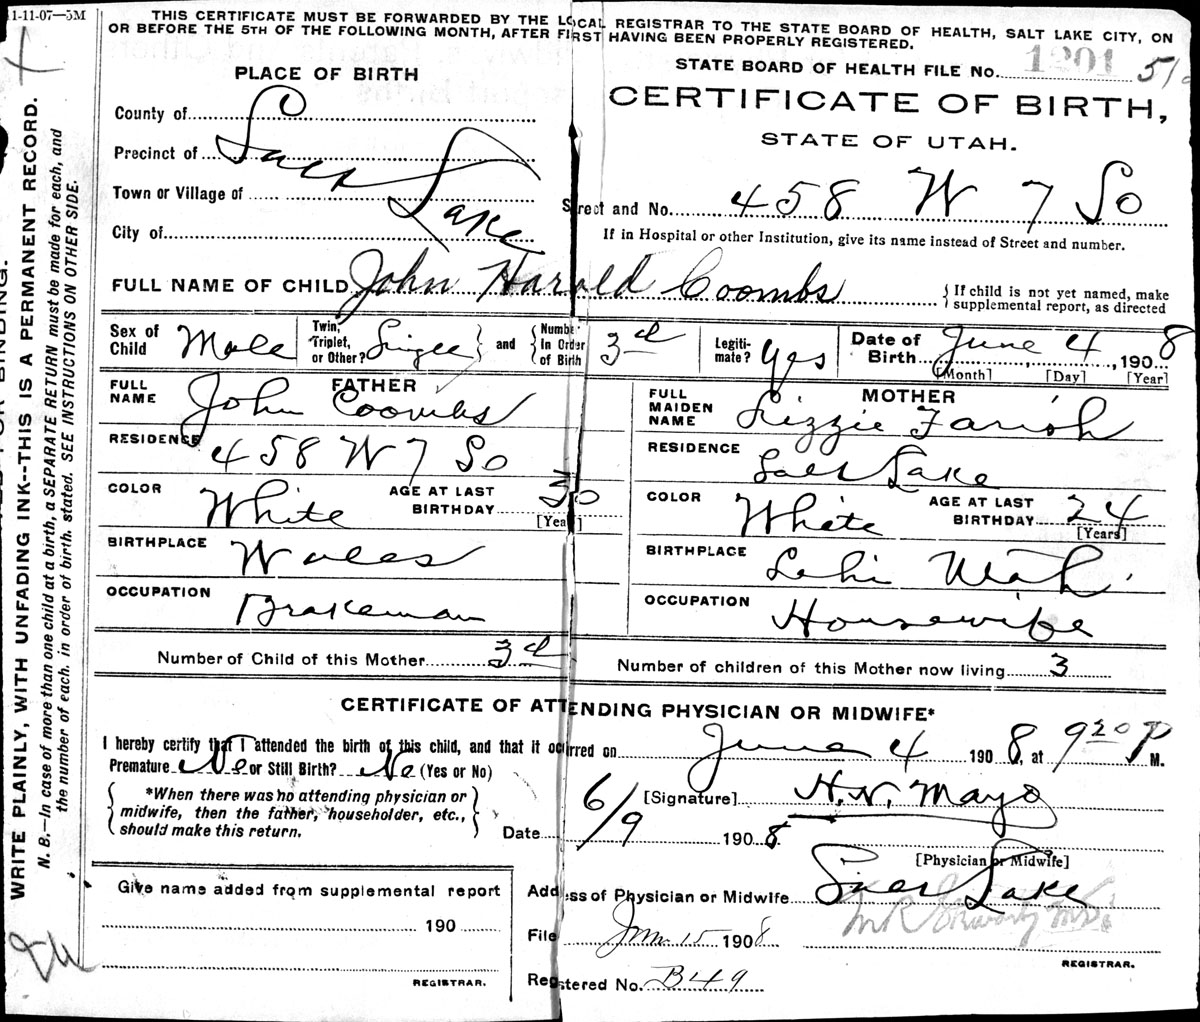 1-11-07—5M
THIS CERTIFICATE MUST BE FORWARDED BY THE LOCAL REGISTRAR TO THE STATE BOARD OF HEALTH, SALT LAKE CITY, ON
OR BEFORE THE 5TH OF THE FOLLOWING MONTH, AFTER FIRST HAVING BEEN PROPERLY REGISTERED.
WRITE PLAINLY, WITH UNFADING INK--THIS IS A PERMANENT RECORD.
N. B.—In case of more than one child at a birth, a SEPARATE RETURN must be made for each, and
the number of each, in order of birth, stated. SEE INSTRUCTIONS ON OTHER SIDE.
PLACE OF BIRTH
County of
Precinct of
Town or Village of
City of
Salt Lake
STATE BOARD OF HEALTH FILE No. 1201 51
CERTIFICATE OF BIRTH,
STATE OF UTAH.
Street and No. 458 W 7 So
If in Hospital or other Institution, give its name instead of Street and number.
FULL NAME OF CHILD John Harold Coombs
{ If child is not yet named, make
supplemental report, as directed
Sex of Child Male
Twin, Triplet, or Other? Single } and { Number In Order of Birth 3d
Legitimate? Yes
Date of Birth June 4, 1908
[Month] [Day] [Year]
FATHER
FULL NAME John Coombs
RESIDENCE 458 W 7 So
COLOR White AGE AT LAST BIRTHDAY 30
[Years]
BIRTHPLACE Wales
OCCUPATION Brakeman
MOTHER
FULL MAIDEN NAME Lizzie Farish
RESIDENCE Salt Lake
COLOR White AGE AT LAST BIRTHDAY 24
[Years]
BIRTHPLACE Lehi Utah.
OCCUPATION Housewife
Number of Child of this Mother 3d
Number of children of this Mother now living 3
CERTIFICATE OF ATTENDING PHYSICIAN OR MIDWIFE*
I hereby certify that I attended the birth of this child, and that it occurred on June 4 1908, at 9 20 P M.
Premature No or Still Birth? No (Yes or No)
{ *When there was no attending physician or
midwife, then the father, householder, etc.,
should make this return. }
[Signature] H. N. Mayo
Date 6/9 1908.
[Physician or Midwife]
Give name added from supplemental report
190
REGISTRAR.
Address of Physician or Midwife Salt Lake
File Jun 15 1908
REGISTRAR.
Registered No. B49